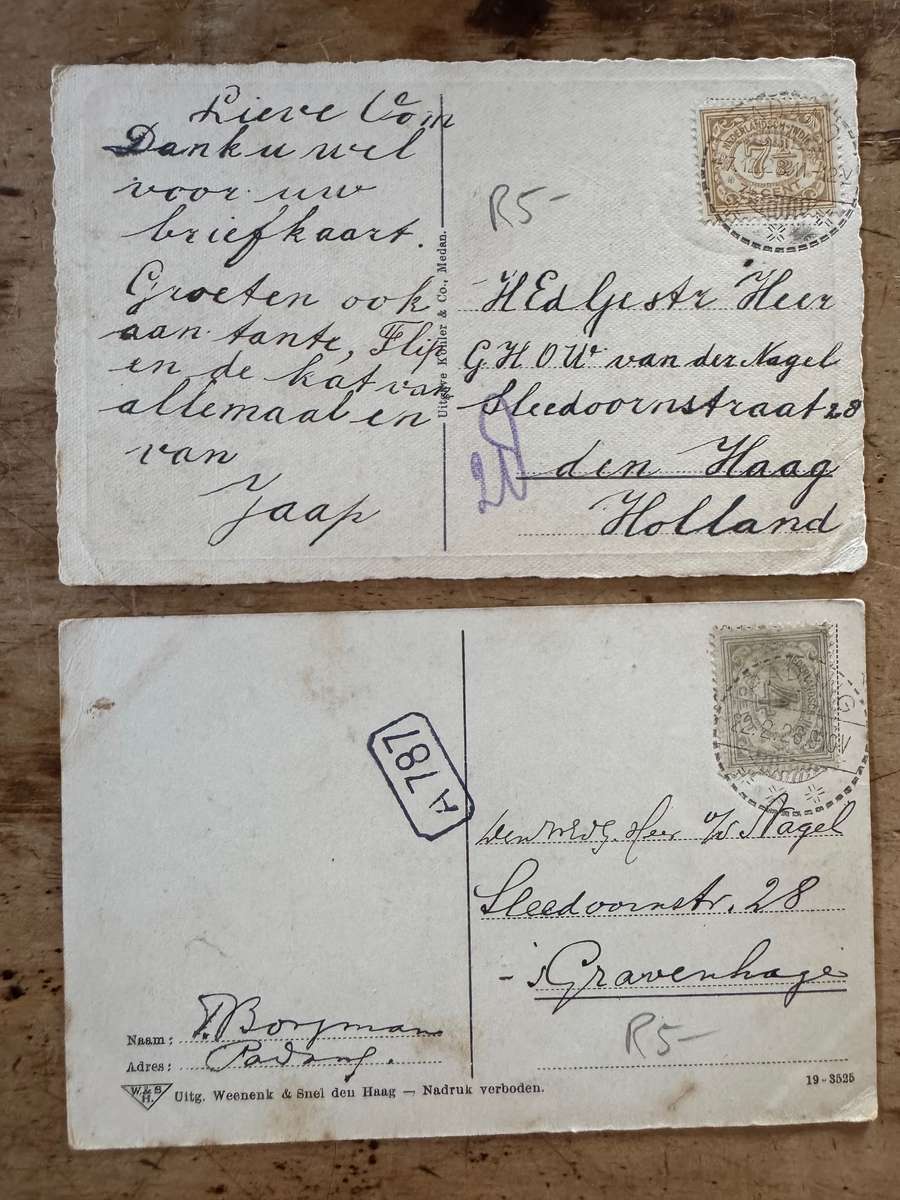 Lieve Oom
Dank u wel
voor uw
briefkaart.
Groeten ook
aan tante, Flip
en de kat van
allemaal en
van
Jaap
Uitgave Köhler & Co., Medan.
R5-
7½
CENT
HEdGestr Heer
G.H.O.W. van der Nagel
Sleedoornstraat 28
den Haag
Holland
A 787
22.2.28
Heer v/d Nagel
Sleedoornstr. 28
-'s Gravenhage
R5-
Naam: Borgman
Adres: Padang.
W & S
H.
Uitg. Weenenk & Snel den Haag — Nadruk verboden.
19-3525